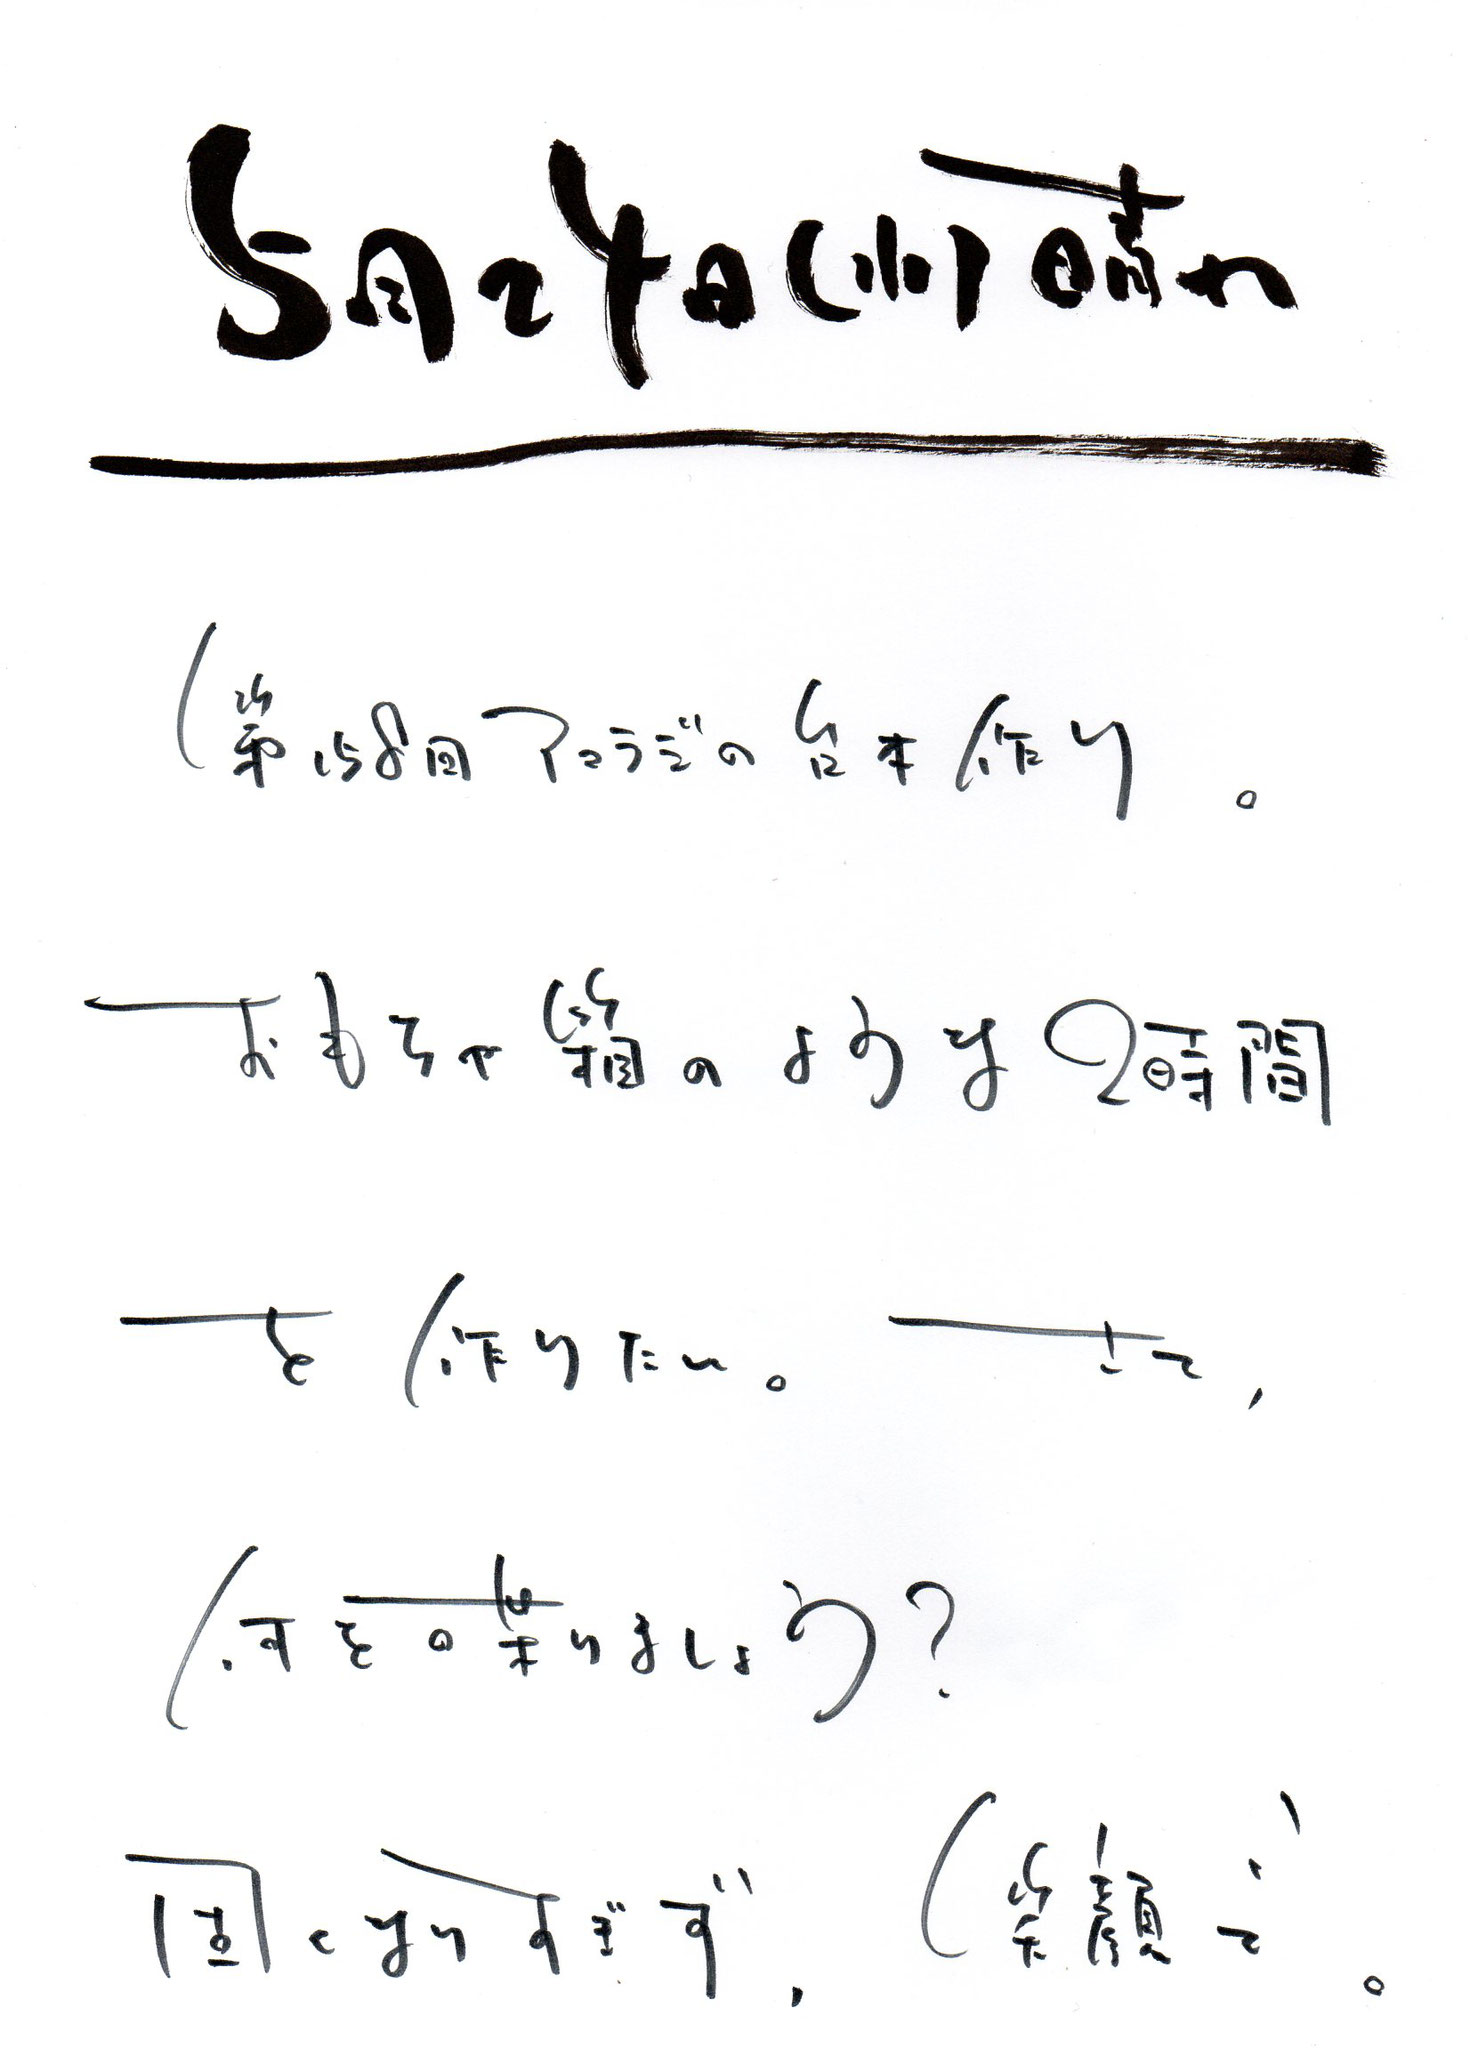 5月24日(水)晴れ
第158回アコラジの台本作り。
おもちゃ箱のような2時間
を作りたい。さて、
何を喋りましょう?
固くなりすぎず、笑顔で。